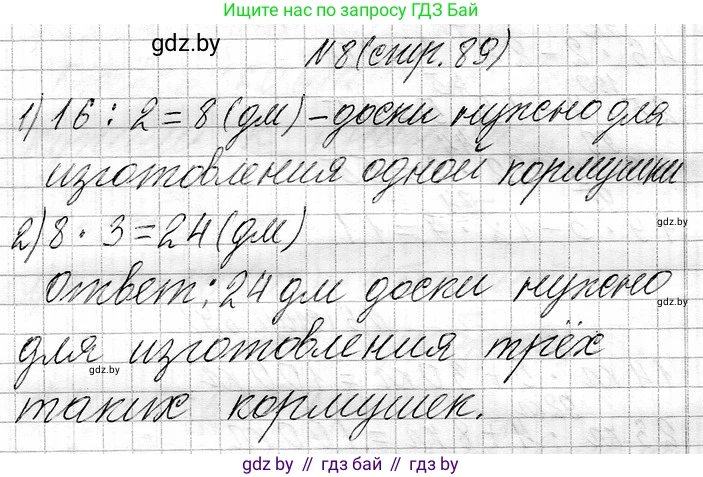 Ищите нас по запросу ГДЗ Бай
gdz.by
№8(стр. 89)
1) 16 : 2 = 8 (дм) – доски нужно для
изготовления одной кормушки
2) 8 · 3 = 24 (дм)
gdz.by
Ответ: 24 дм доски нужно
gdz.by
для изготовления трёх
gdz.by
таких кормушек.
gdz.by // гдз бай // gdz.by